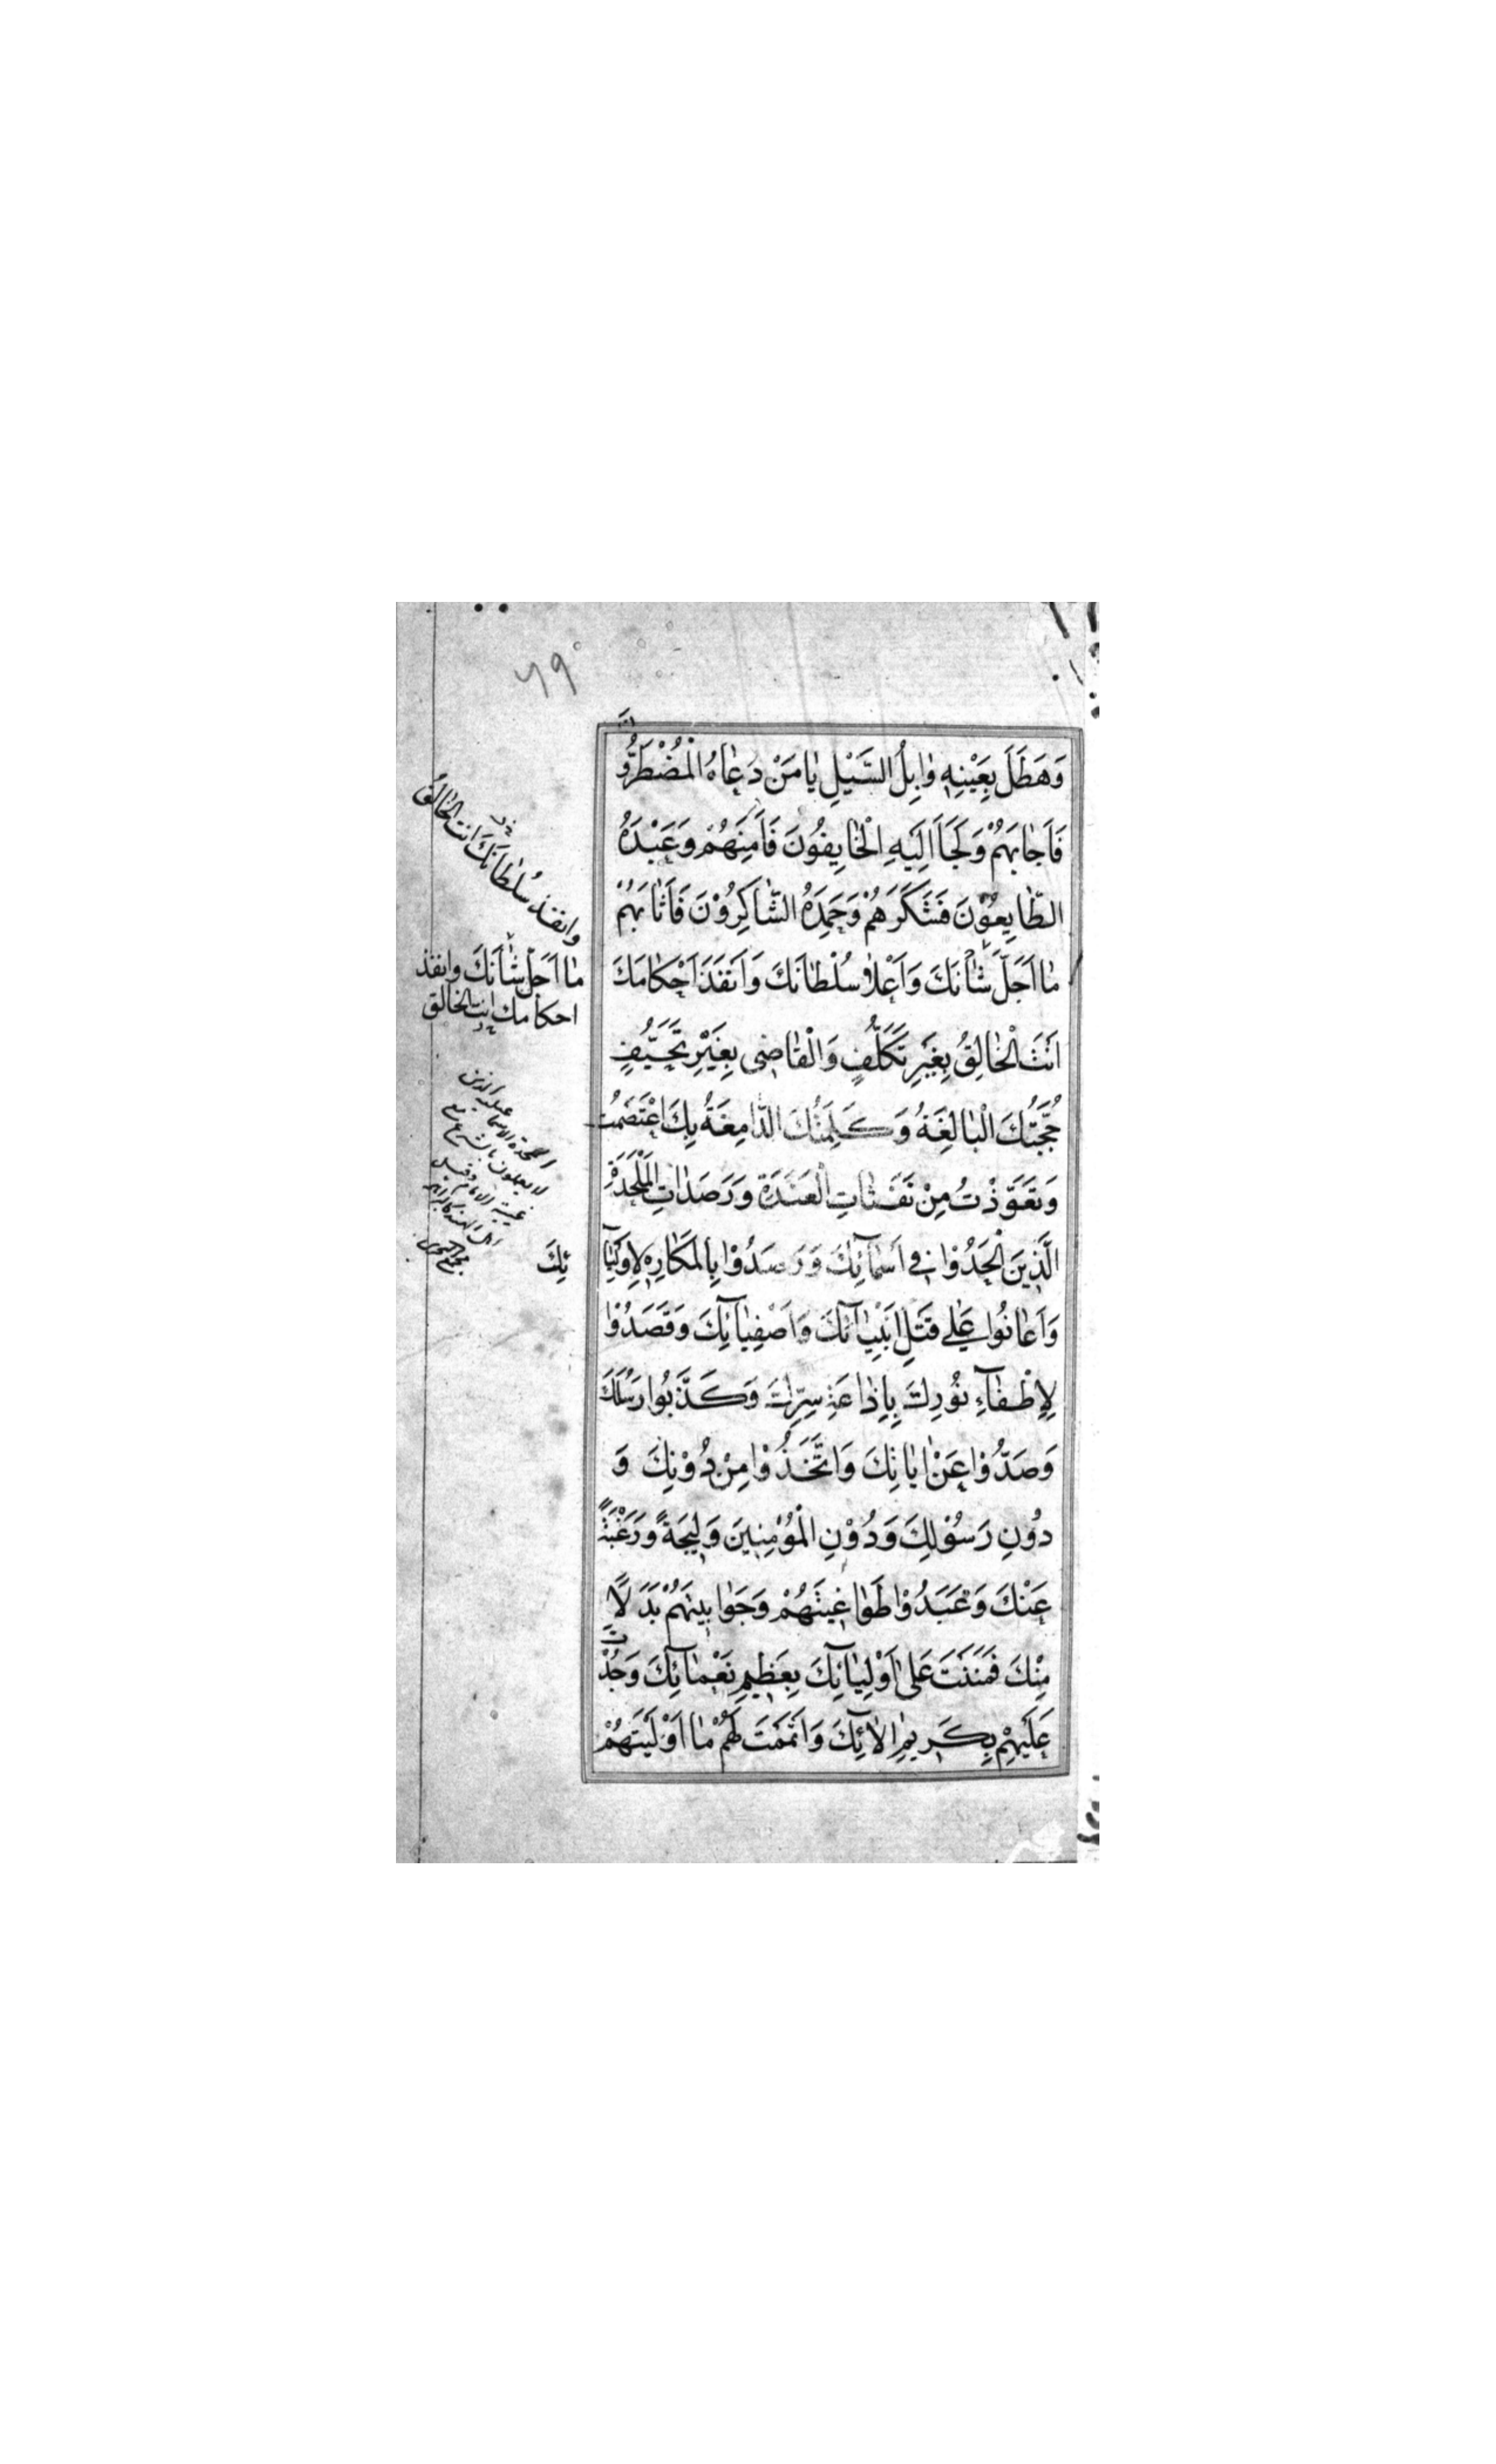 ٦٩
وَهَطَلَ بِعَيْنِهِ وٰابِلُ السَّيْلِ يٰا مَنْ دَعٰاهُ الْمُضْطَرُّو
نَ
فَاَجٰابَهُمْ وَلَجَأَ اِلَيْهِ الْخٰايِفُونَ فَاٰمَنَهُمْ وَعَبَدَهُ
الطّٰايِعُوْنَ فَشَكَرَهُمْ وَحَمِدَهُ الشّٰاكِرُوْنَ فَاَثٰابَهُمْ
مٰا اَجَلَّ شَأْنَكَ وَاَعْلاٰ سُلْطٰانَكَ وَاَنْفَذَ اَحْكٰامَكَ
اَنْتَ الْخٰالِقُ بِغَيْرِ تَكَلُّفٍ وَالْقٰاضِى بِغَيْرِ تَحَيُّفٍ
حُجَّتُكَ الْبٰالِغَةُ وَكَلِمَتُكَ الدّٰامِغَةُ بِكَ اعْتَصَمْتُ
وَتَعَوَّذْتُ مِنْ نَفَثٰاتِ الْعَنَدَةِ وَرَصَدٰاتِ الْمُلْحِدَةِ
الَّذِينَ اَلْحَدُوْا فِى اَسْمٰآئِكَ وَرَصَدُوْا بِالْمَكٰارِهِ لِاَوْلِيٰآ
ئِكَ
وَاَعٰانُوا عَلٰى قَتْلِ اَنْبِيٰآئِكَ وَاَصْفِيٰآئِكَ وَقَصَدُوْا
لِاِطْفٰآءِ نُوْرِكَ بِاِذٰاعَةِ سِرِّكَ وَكَذَّبُوا رُسُلَكَ
وَصَدُّوْا عَنْ اٰيٰاتِكَ وَاتَّخَذُوْا مِنْ دُوْنِكَ وَ
دُونِ رَسُوْلِكَ وَدُوْنِ الْمُؤْمِنِينَ وَلِيجَةً وَرَغْبَةً
عَنْكَ وَعَبَدُوْا طَوٰاغِيتَهُمْ وَجَوٰابِيتَهُمْ بَدَلًا
مِنْكَ فَمَنَنْتَ عَلٰى اَوْلِيٰآئِكَ بِعَظِيمِ نَعْمٰآئِكَ وَجُدْ
تَ
عَلَيْهِمْ بِكَرِيمِ اٰلاٰئِكَ وَاَتْمَمْتَ لَهُمْ مٰا اَوْلَيْتَهُمْ
وانفذ سُلْطٰانَكَ انت الخٰالق
مٰا اَجَلَّ شَأْنَكَ وانفذ
احكامك انت الخالق
الملحدة الاسماعيلية الذين
لا يعملون بالشرع مع
غيبة الامام وقيل
اهل الهند كالبراهمة